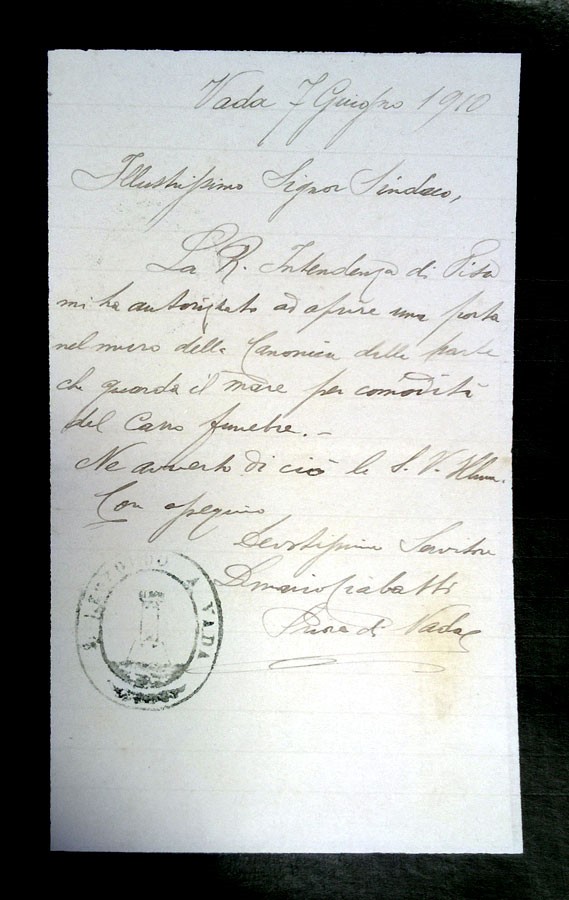 Vada 7 Giugno 1910
Illustrissimo Signor Sindaco,
La R. Intendenza di Pisa
mi ha autorizzato ad aprire una porta
nel muro della Canonica dalla parte
che guarda il mare per comodità
del Carro funebre. –
Ne avverto di ciò la S. V. Illma.
Con ossequio
Devotissimo Servitore
Ciabatti
Priore di Vada
S. LEOPOLDO A VADA